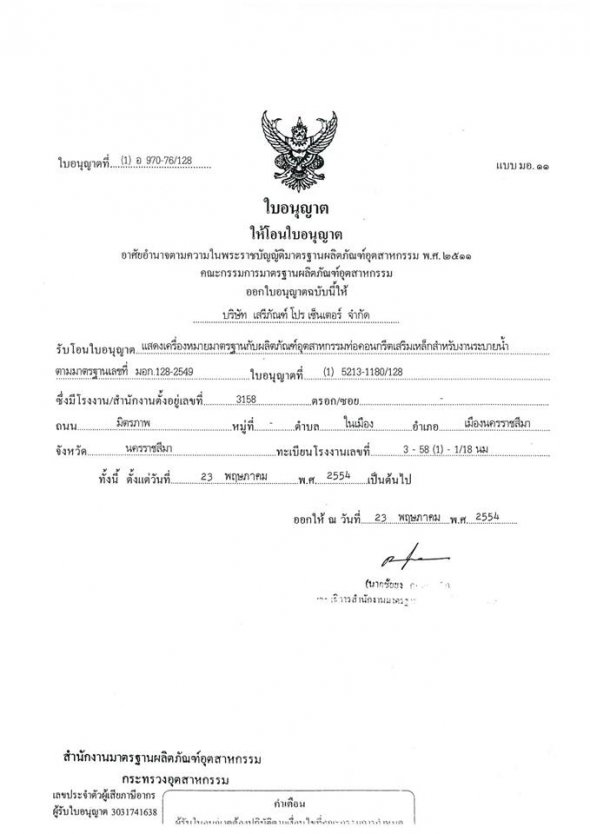 ใบอนุญาตที่ (1) อ 970-76/128
แบบ มอ. ๑๑
ใบอนุญาต
ให้โอนใบอนุญาต
อาศัยอำนาจตามความในพระราชบัญญัติมาตรฐานผลิตภัณฑ์อุตสาหกรรม พ.ศ. ๒๕๑๑
คณะกรรมการมาตรฐานผลิตภัณฑ์อุตสาหกรรม
ออกใบอนุญาตฉบับนี้ให้
บริษัท เสรีภัณฑ์ โปร เซ็นเตอร์ จำกัด
รับโอนใบอนุญาต แสดงเครื่องหมายมาตรฐานกับผลิตภัณฑ์อุตสาหกรรมท่อคอนกรีตเสริมเหล็กสำหรับงานระบายน้ำ
ตามมาตรฐานเลขที่ มอก.128-2549 ใบอนุญาตที่ (1) 5213-1180/128
ซึ่งมีโรงงาน/สำนักงานตั้งอยู่เลขที่ 3158 ตรอก/ซอย -
ถนน มิตรภาพ หมู่ที่ - ตำบล ในเมือง อำเภอ เมืองนครราชสีมา
จังหวัด นครราชสีมา ทะเบียนโรงงานเลขที่ 3 - 58 (1) - 1/18 นม
ทั้งนี้ ตั้งแต่วันที่ 23 พฤษภาคม พ.ศ. 2554 เป็นต้นไป
ออกให้ ณ วันที่ 23 พฤษภาคม พ.ศ. 2554
สำนักงานมาตรฐานผลิตภัณฑ์อุตสาหกรรม
กระทรวงอุตสาหกรรม
เลขประจำตัวผู้เสียภาษีอากร
ผู้รับใบอนุญาต 3031741638
คำเตือน